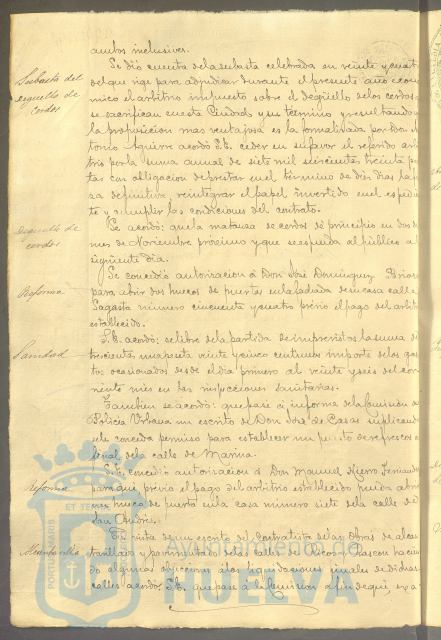 ambos inclusives.
Se dió cuenta de la subasta celebrada en veinte y cuatro
Subasta del degüello de cerdos
del que rige para adjudicar durante el presente año econó
mico el arbitrio impuesto sobre el degüello de los cerdos que
se sacrifican en esta Ciudad y su término y resultando que
la proposicion mas ventajosa es la formalizada por don An
tonio Aguirre acordó S.E. ceder en su favor el referido arbi
trio por la suma anual de siete mil seiscientas treinta pese
tas con obligacion de prestar en el término de diez dias la fian
za definitiva, reintegrar el papel invertido en el espedien
te y a cumplir las condiciones del contrato.
Degüello de cerdos
Se acordó: que la matanza de cerdos dé principio en dos de
mes de Noviembre próximo y que se espenda al público al
siguiente dia.
Se concedió autorizacion á Don José Dominguez
Reforma
para abrir dos huecos de puertas en la fachada de su casa calle
Sagasta número cincuenta y cuatro previo el pago del arbitrio
establecido.
Sanidad
S.E. acordó: se libre de la partida de imprevistos la suma de
trescientas una peseta veinte y cinco centimos importe de los gas
tos ocasionados desde el dia primero al veinte y seis del cor
riente mes en las inspecciones sanitarias.
Tambien se acordó: que pase á informe de la Comision de
Policia Urbana un escrito de Don José de Casas suplicando
se le conceda permiso para establecer un puesto de refrescos
final de la calle de Marina.
S.E. concedió autorizacion á Don Manuel Hierro Fernandez
Reforma
para que previo el pago del arbitrio establecido pueda abrir
un hueco de puerta en la casa número siete de la calle de
San Andrés.
En vista de un escrito del contratista de las obras de alcan
tarillado y pavimentado de la calle
do algunas objeciones á las liquidaciones finales de dichas
calles acordó S.E. que pase á la Comision a fin de que, en a
PORTUS MARIS
ET TERRAE
Ayuntamiento de
HUELVA